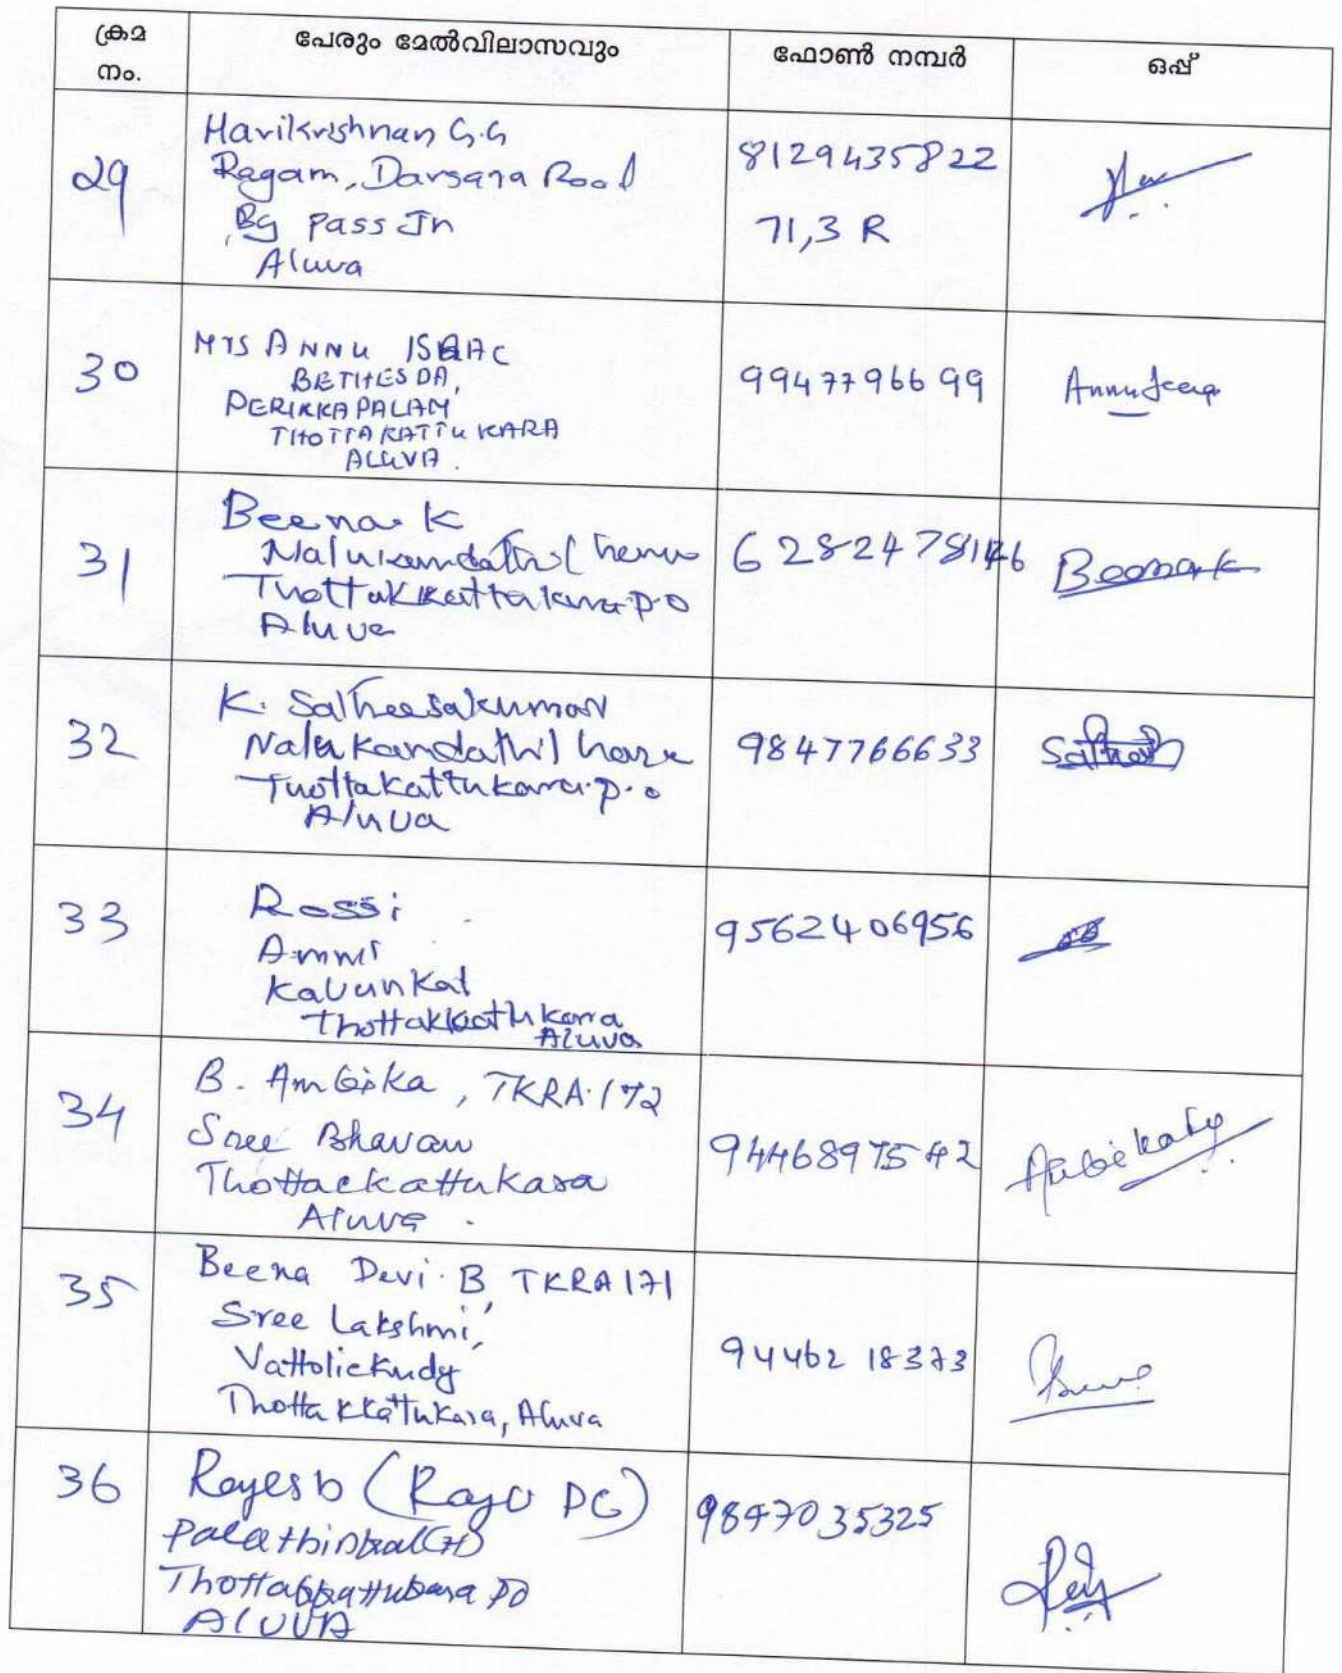 ക്രമ
നം.
പേരും മേൽവിലാസവും
ഫോൺ നമ്പർ
ഒപ്പ്
29
Harikrishnan G.G
Ragam, Darsana Road
By pass Jn
Aluva
8129435822
71,3 R
30
Mrs ANNU ISAAC
BETHESDA,
PERIKKAPALAM
THOTTAKATTUKARA
ALUVA.
9947796699
31
Beena K
Thottakkattukara p.o
Aluva
32
K. Satheesakumar
Nalukandathil house
Thottakattukara p.o
Aluva
9847766633
33
Rossi
Kavunkal
Thottakkattukara
Aluva
9562406956
34
B. Ambika, TKRA.172
Sree Bhavan
Thottackattukara
Aluva.
9446897542
Ambika
35
Beena Devi. B, TKRA 171
Sree Lakshmi,
Vattolickudy
Thottakkattukara, Aluva
94462 18373
36
(Raju PG)
Thottakkattukara PO
ALUVA
9847035325